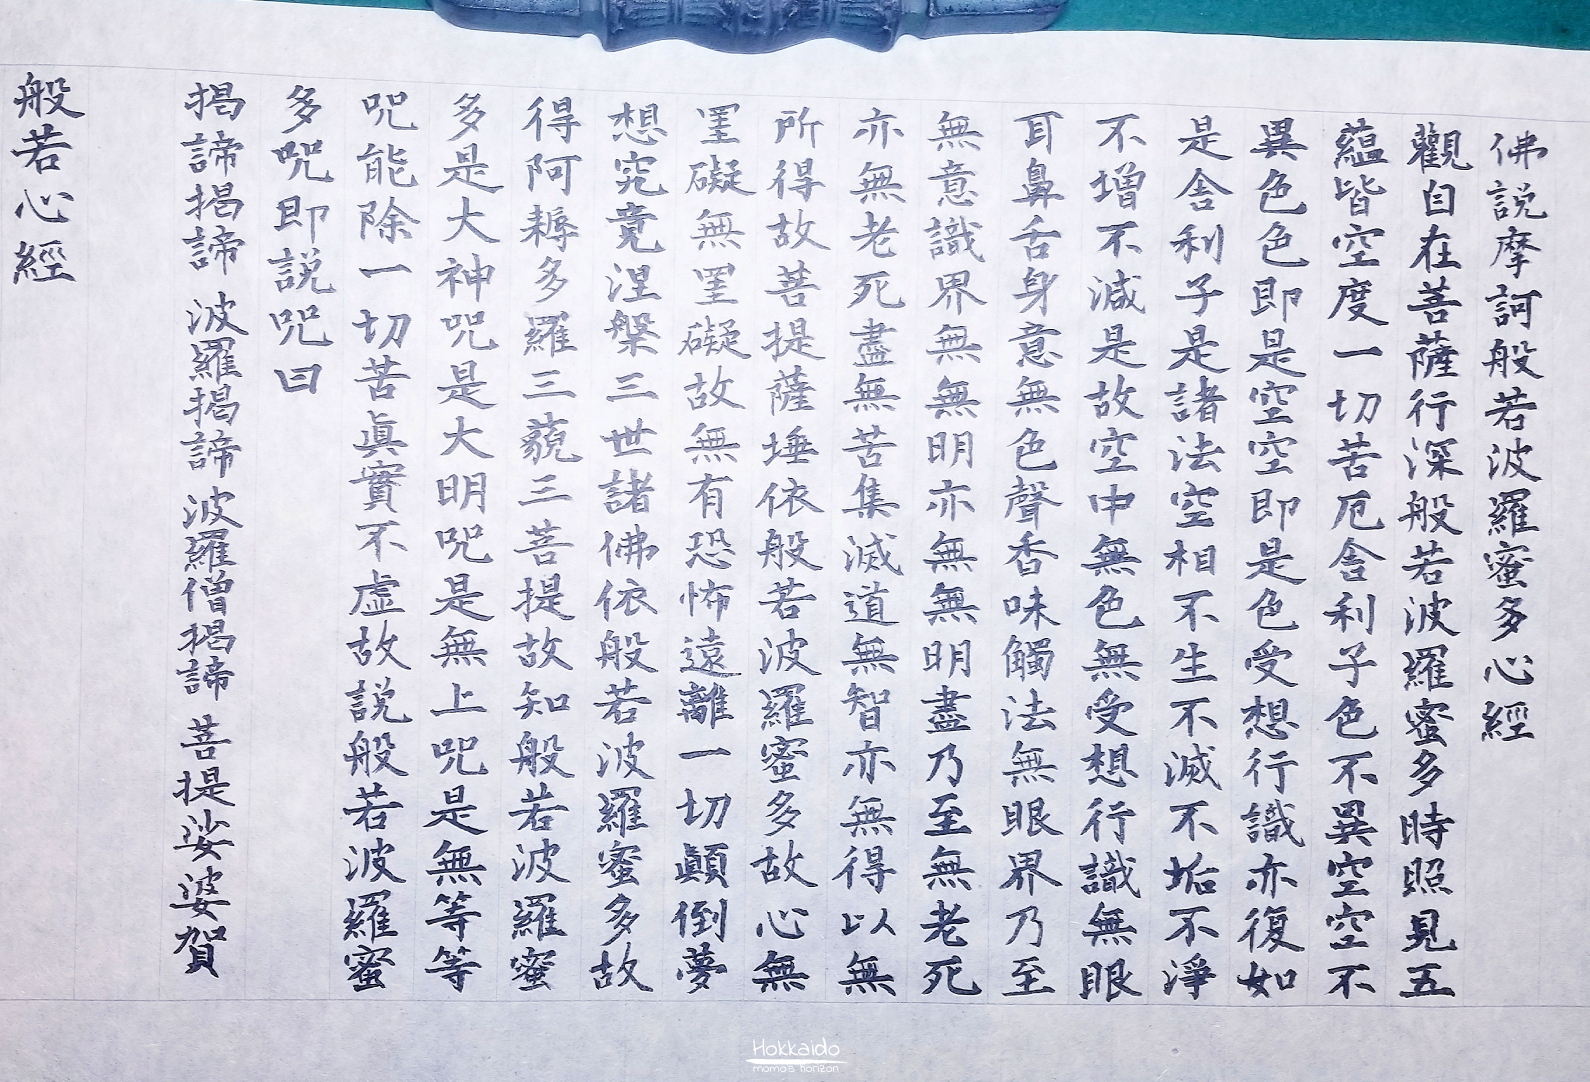 佛説摩訶般若波羅蜜多心經
觀自在菩薩行深般若波羅蜜多時照見五
蘊皆空度一切苦厄舎利子色不異空空不
異色色即是空空即是色受想行識亦復如
是舎利子是諸法空相不生不滅不垢不淨
不增不減是故空中無色無受想行識無眼
耳鼻舌身意無色聲香味觸法無眼界乃至
無意識界無無明亦無無明盡乃至無老死
亦無老死盡無苦集滅道無智亦無得以無
所得故菩提薩埵依般若波羅蜜多故心無
罣礙無罣礙故無有恐怖遠離一切顛倒夢
想究竟涅槃三世諸佛依般若波羅蜜多故
得阿耨多羅三藐三菩提故知般若波羅蜜
多是大神咒是大明咒是無上咒是無等等
咒能除一切苦眞實不虚故説般若波羅蜜
多咒即説咒曰
揭諦揭諦 波羅揭諦 波羅僧揭諦 菩提娑婆賀
般若心經
Hokkaido
momo's horizon